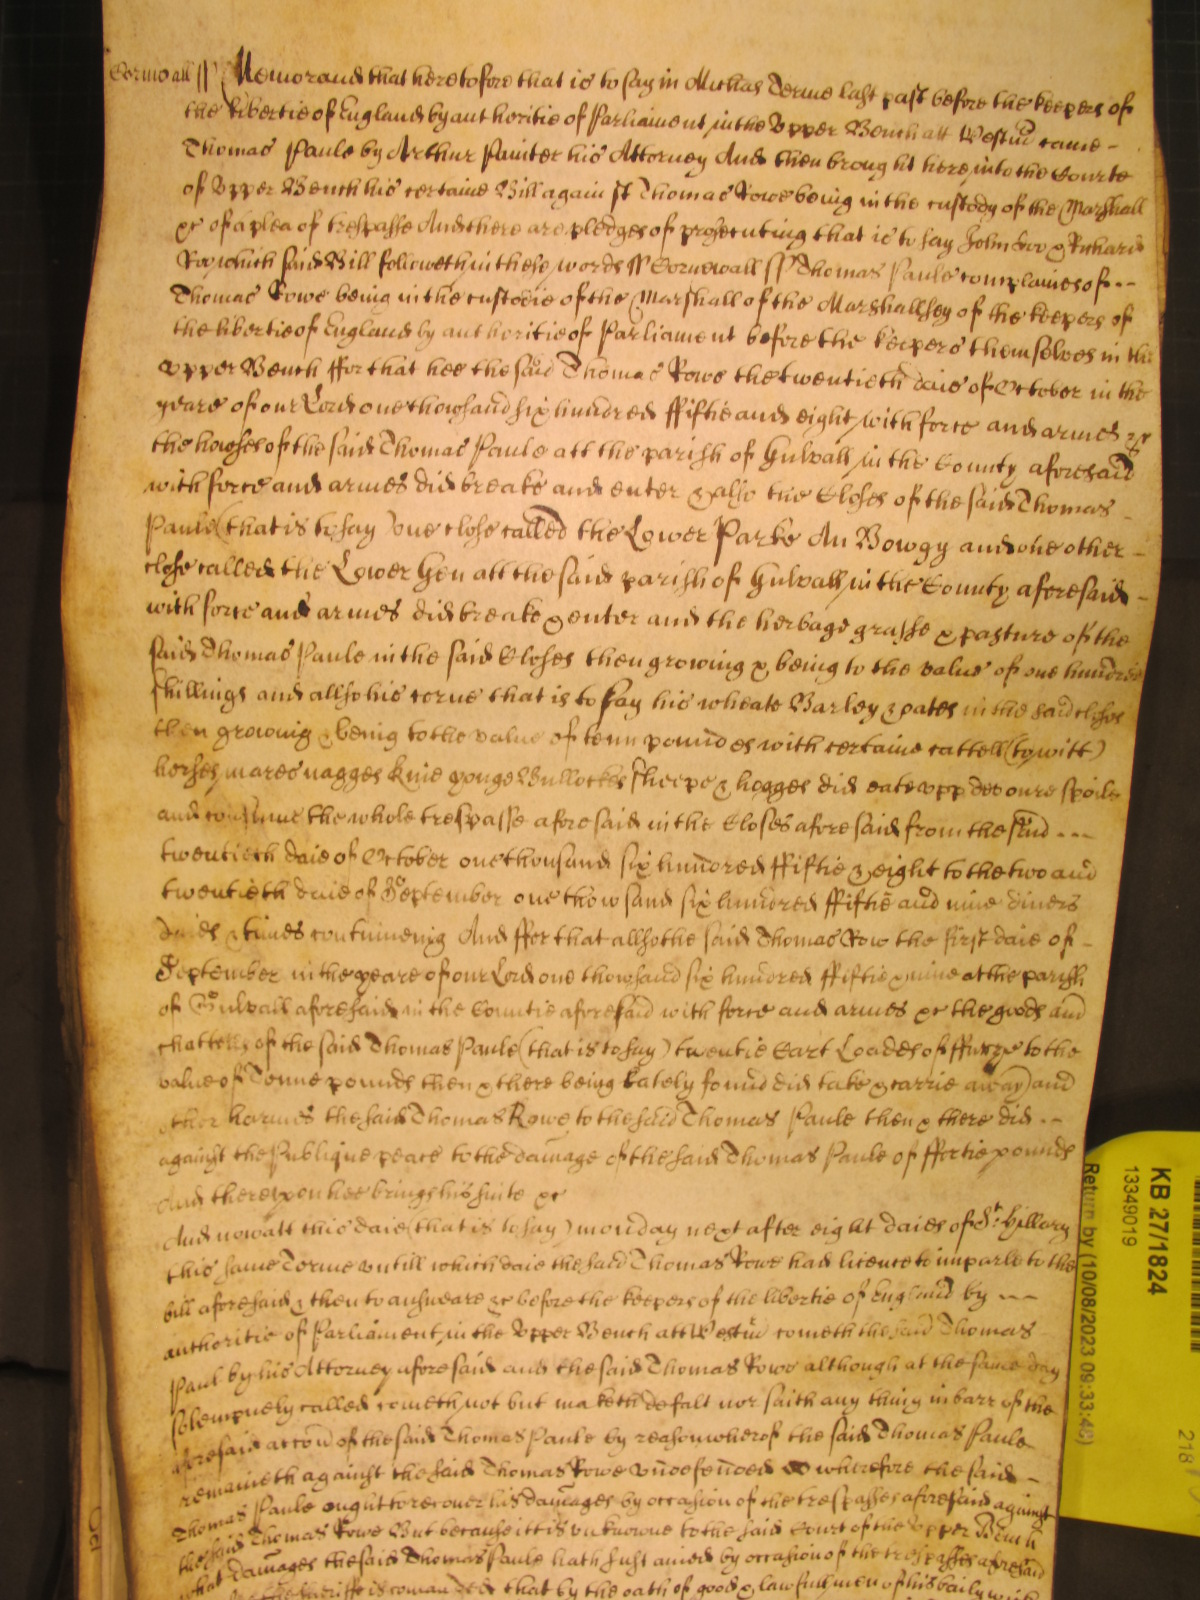 Cornwall ss Memorand that heretofore that is to say in Michas Terme last past before the keepers of
the libertie of England by authoritie of Parliament in the Upper Bench att Westm came -
Thomas Paule by Arthur Painter his Attorney And then brought here into the Courte
of Upper Bench his certaine Bill against Thomas Rowe being in the custody of the Marshall
&c of a plea of trespasse And there are pledges of prosecuting that is to say John Doo & Richard
Roo which said Bill followeth in these words ss Cornewall ss Thomas Paule complaines of --
Thomas Rowe being in the custodie of the Marshall of the Marshallsey of the keepers of
the libertie of England by authoritie of Parliament before the keepers themselves in the
Upper Bench ffor that hee the said Thomas Rowe the twentieth daie of October in the
yeare of our Lord one thowsand six hundred ffiftie and eight with force and armes &c
the howses of the said Thomas Paule att the parish of Gulvall in the County aforesaid
with force and armes did breake and enter & also the Closes of the said Thomas -
Paule (that is to say) one close called the Lower Parke An Bowgy and one other -
close called the Lower Hen att the said parish of Gulvall in the County aforesaid -
with force and armes did breake & enter and the herbage grasse & pasture of the
said Thomas Paule in the said Closes then growing & being to the value of one hundred
shillings and allso his corne that is to say his wheate Barley & oates in the said closes
then growing & being to the value of tenn poundes with certaine cattell (to witt)
horses mares nagges kine younge Bullockes sheepe & hogges did eate upp devoure spoile
and consume the whole trespasse aforesaid in the Closes aforesaid from the said ---
twentieth daie of October one thousand six hundred ffiftie & eight to the two and
twentieth daie of September one thowsand six hundred ffiftie and nine divers
daies & times continueing And ffor that allso the said Thomas Row the first daie of -
September in the yeare of our Lord one thowsand six hundred ffiftie & nine at the parish
of Gulvall aforesaid in the Countie aforesaid with force and armes &c the goods and
chattells of the said Thomas Paule (that is to say) twentie Cart Loades of ffurze to the
value of Tenne pounds then & there being lately found did take & carrie away and
other harmes the said Thomas Rowe to the said Thomas Paule then & there did --
against the Publique peace to the damage of the said Thomas Paule of ffortie pounds
And thereupon hee brings his suite &c
And now att this daie (that is to say) monday next after eight daies of St Hillary
this same Terme untill which daie the said Thomas Rowe had licence to imparle to the
bill aforesaid & then to answeare &c before the keepers of the libertie of England by ---
authoritie of Parliament in the Upper Bench att Westm cometh the said Thomas
Paul by his Attorney aforesaid and the said Thomas Rowe although at the same day
solempnely called cometh not but maketh defalt nor saith any thing in barr of the
foresaid accon of the said Thomas Paule by reason wherof the said Thomas Paule
remaineth against the said Thomas Rowe undefended wherefore the said -
Thomas Paule ought to recover his damages by occasion of the trespasses aforesaid against
the said Thomas Rowe But because itt is unknowne to the said Court of the Upper Bench
what damages the said Thomas Paule hath sustained by occasion of the trespasses aforesaid
the Sheriffe is comanded that by the oath of good & lawfull men of his bailywick
KB 27/1824
13349019
Return by (10/08/2023 09:33:48)